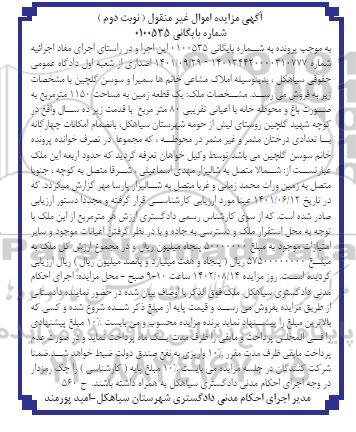 آگهی مزایده اموال غیر منقول ( نوبت دوم )
شماره بایگانی ۰۱۰۰۵۳۵
به موجب پرونده به شماره بایگانی ۰۱۰۰۵۳۵ این اجرا و در راستای اجرای مفاد اجرائیه
شماره ۱۴۰۱۳۴۴۲۰۰۰۰۳۱۰۷۷۷ - ۱۴۰۱/۰۹/۲۹ اصداری از شعبه اول دادگاه عمومی
حقوقی سیاهکل ، بدینوسیله املاک مشاعی خانم ها سمیرا و سوسن گلچین با مشخصات
زیر به فروش می رسد. مشخصات ملک: یک قطعه زمین به مساحت ۱۱۵۰ مترمربع به
صورت باغ و محوطه خانه با اعیانی تقریبی ۸۰ متر مربع با قدمت زیر ده سال واقع در
کوچه شهید گلچین روستای لیش از حومه شهرستان سیاهکل، بانضمام امکانات چهارگانه
با تعدادی درختان مثمر و غیر مثمر در محوطه ، که مجموعا در تصرف خوانده پرونده
خانم سوسن گلچین می باشد توسط وکیل خواهان تعرفه گردید که حدود اربعه این ملک
عبارتست از: شمالا متصل به شالیزار مهدی اسماعیلی ، شرقا متصل به کوچه ، جنوبا
متصل به زمین وراث محمد زمانی و غربا متصل به شالیزار پارسا مهر گزارش میگردد. که
در تاریخ ۱۴۰۱/۰۶/۱۲ عینا مورد ارزیابی کارشناسی قرار گرفته و مجددا دستور ارزیابی
صادر شده است. که از سوی کارشناس رسمی دادگستری ارزش هر مترمربع از این ملک با
توجه به محل استقرار ملک و دسترسی به جاده و با در نظر گرفتن اعیانات موجود و سایر
امتیازات موجود به مبلغ ۵۰۰۰۰۰۰۰ پنجاه میلیون ریال و در مجموع ارزش کل ملک به
مبلغ ۵۷۵۰۰۰۰۰۰۰۰ ریال ( پنجاه و هفت میلیارد و پانصد میلیون ریال ) ریال ارزیابی
گردیده است. روز مزایده ۱۴۰۲/۰۸/۱۴ ساعت ۱۰-۹ صبح - محل مزایده: اجرای احکام
مدنی دادگستری سیاهکل. ملک فوق الذکر با اوصاف بیان شده در حضور نماینده دادستانی
از طریق مزایده بفروش می رسد و قیمت پایه از مبلغ ذکر شده شروع شده و کسی که
بالاترین مبلغ را پیشنهاد نماید برنده مزایده محسوب و می بایست ۱۰٪ مبلغ پیشنهادی
را فی المجلس پرداخت و مابقی را ظرف مدت یک ماه پرداخت نماید و در صورت عدم
پرداخت مابقی ظرف مدت مقرر ۱۰٪ واریزی به نفع صندوق دولت ضبط خواهد شد.ضمنا
شرکت کنندگان در جلسه مزایده می بایست ۱۰٪ مبلغ پایه ( کارشناسی ) را چک رمزدار
در وجه اجرای احکام مدنی دادگستری سیاهکل به همراه داشته باشند. ح ۵۶۰
مدیر اجرای احکام مدنی دادگستری شهرستان سیاهکل-امید پورمند